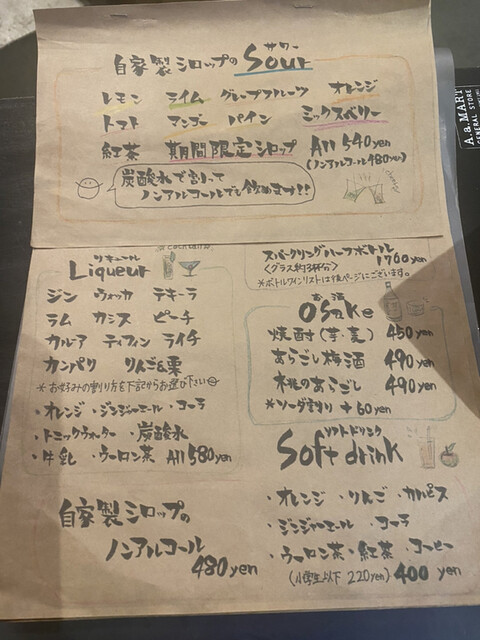 サワー
自家製シロップのSour
レモン ライム グレープフルーツ オレンジ
トマト マンゴー パイン ミックスベリー
紅茶 期間限定シロップ All 540yen
(ノンアルコール480yen)
炭酸水で割って
ノンアルコールでも飲めます!!
A.a.MART
GENERAL STORE
リキュール
Liqueur
cocktail
ジン ウォッカ テキーラ
ラム カシス ピーチ
カルア ティフィン ライチ
カンパリ りんご&栗
*お好みの割り方を下記からお選び下さい
・オレンジ ・ジンジャーエール ・コーラ
・トニックウォーター ・炭酸水
・牛乳 ・ウーロン茶 All 580yen
自家製シロップの
ノンアルコール
480yen
スパークリングハーフボトル
<グラス約3杯分> 1760yen
*ボトルワインリストは後ページにございます。
お酒
Osake
焼酎(芋・麦) 450yen
あらごし梅酒 490yen
木桃のあらごし 490yen
*ソーダ割り +60yen
ソフトドリンク
Soft drink
・オレンジ ・りんご ・カルピス
・ジンジャーエール ・コーラ
・ウーロン茶 ・紅茶 ・コーヒー
(小学生以下 220yen) 400 yen